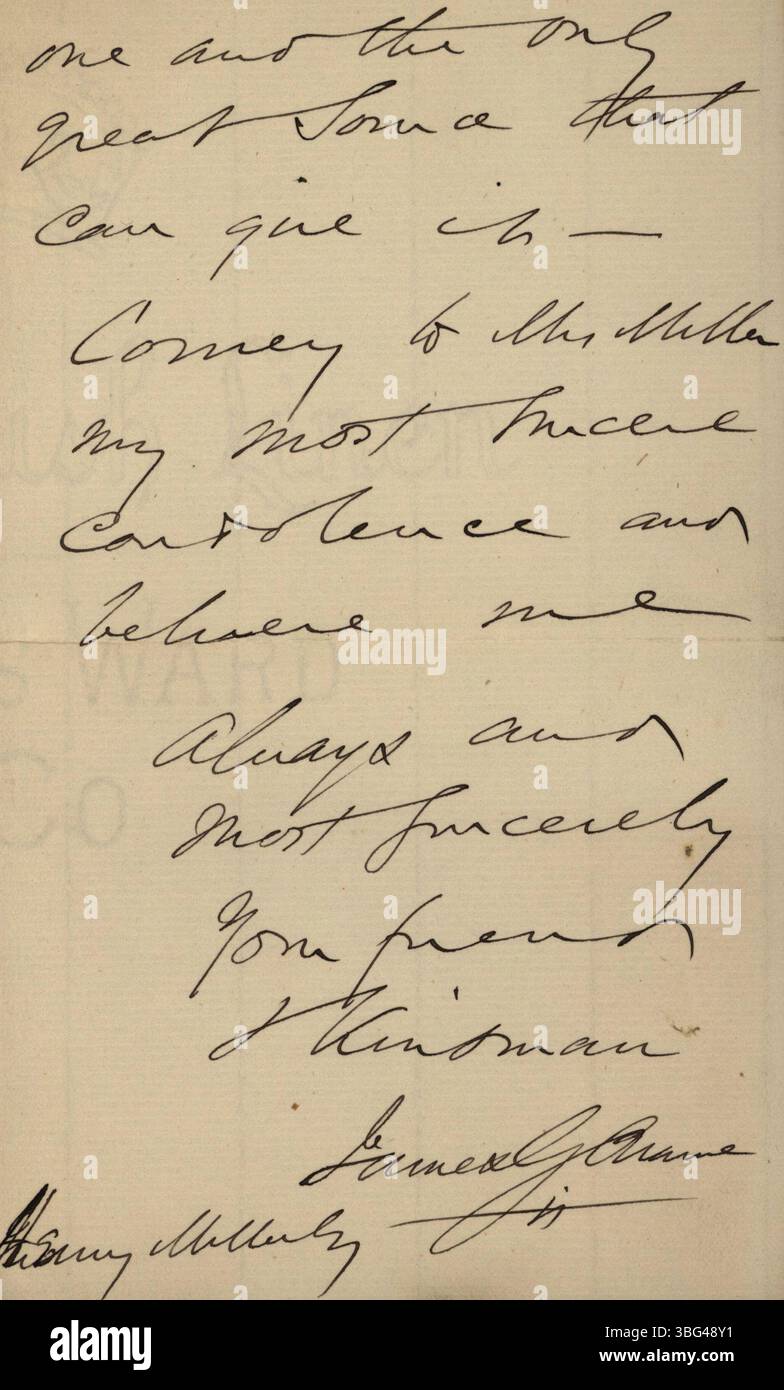 one and the only
great Source that
can give it —
Convey to Mrs Miller
my most sincere
condolence and
believe me
Always and
most sincerely
Your friend
& Kinsman
James G
jr
Henry Miller Esq
alamy
Image ID: 3BG48Y1
www.alamy.com